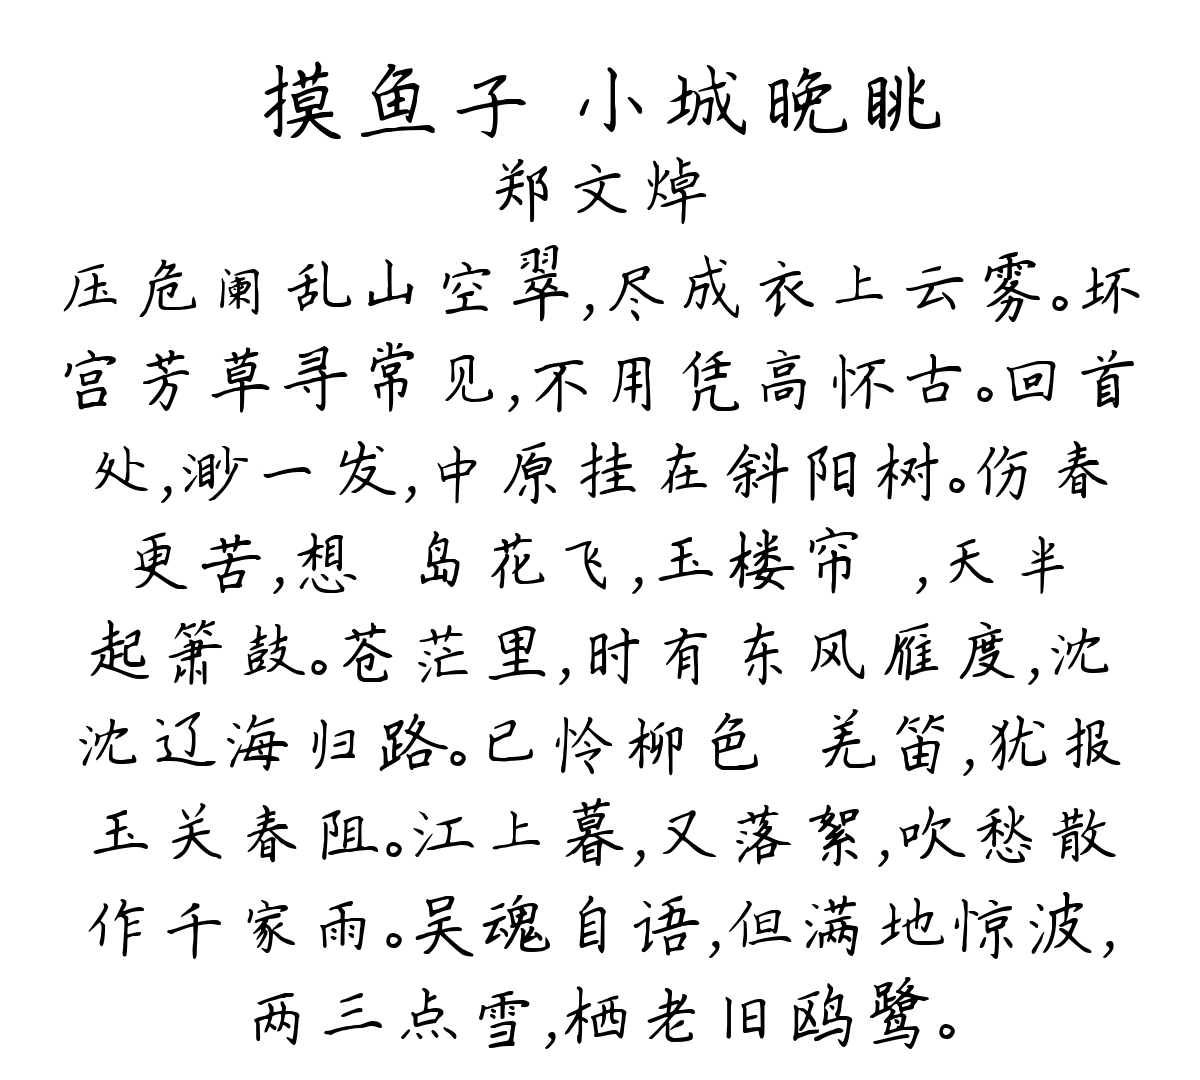 摸鱼子 小城晚眺
郑文焯
压危阑乱山空翠,尽成衣上云雾。坏
宫芳草寻常见,不用凭高怀古。回首
处,渺一发,中原挂在斜阳树。伤春
更苦,想 岛花飞,玉楼帘 ,天半
起箫鼓。苍茫里,时有东风雁度,沈
沈辽海归路。已怜柳色 羌笛,犹报
玉关春阻。江上暮,又落絮,吹愁散
作千家雨。吴魂自语,但满地惊波,
两三点雪,栖老旧鸥鹭。